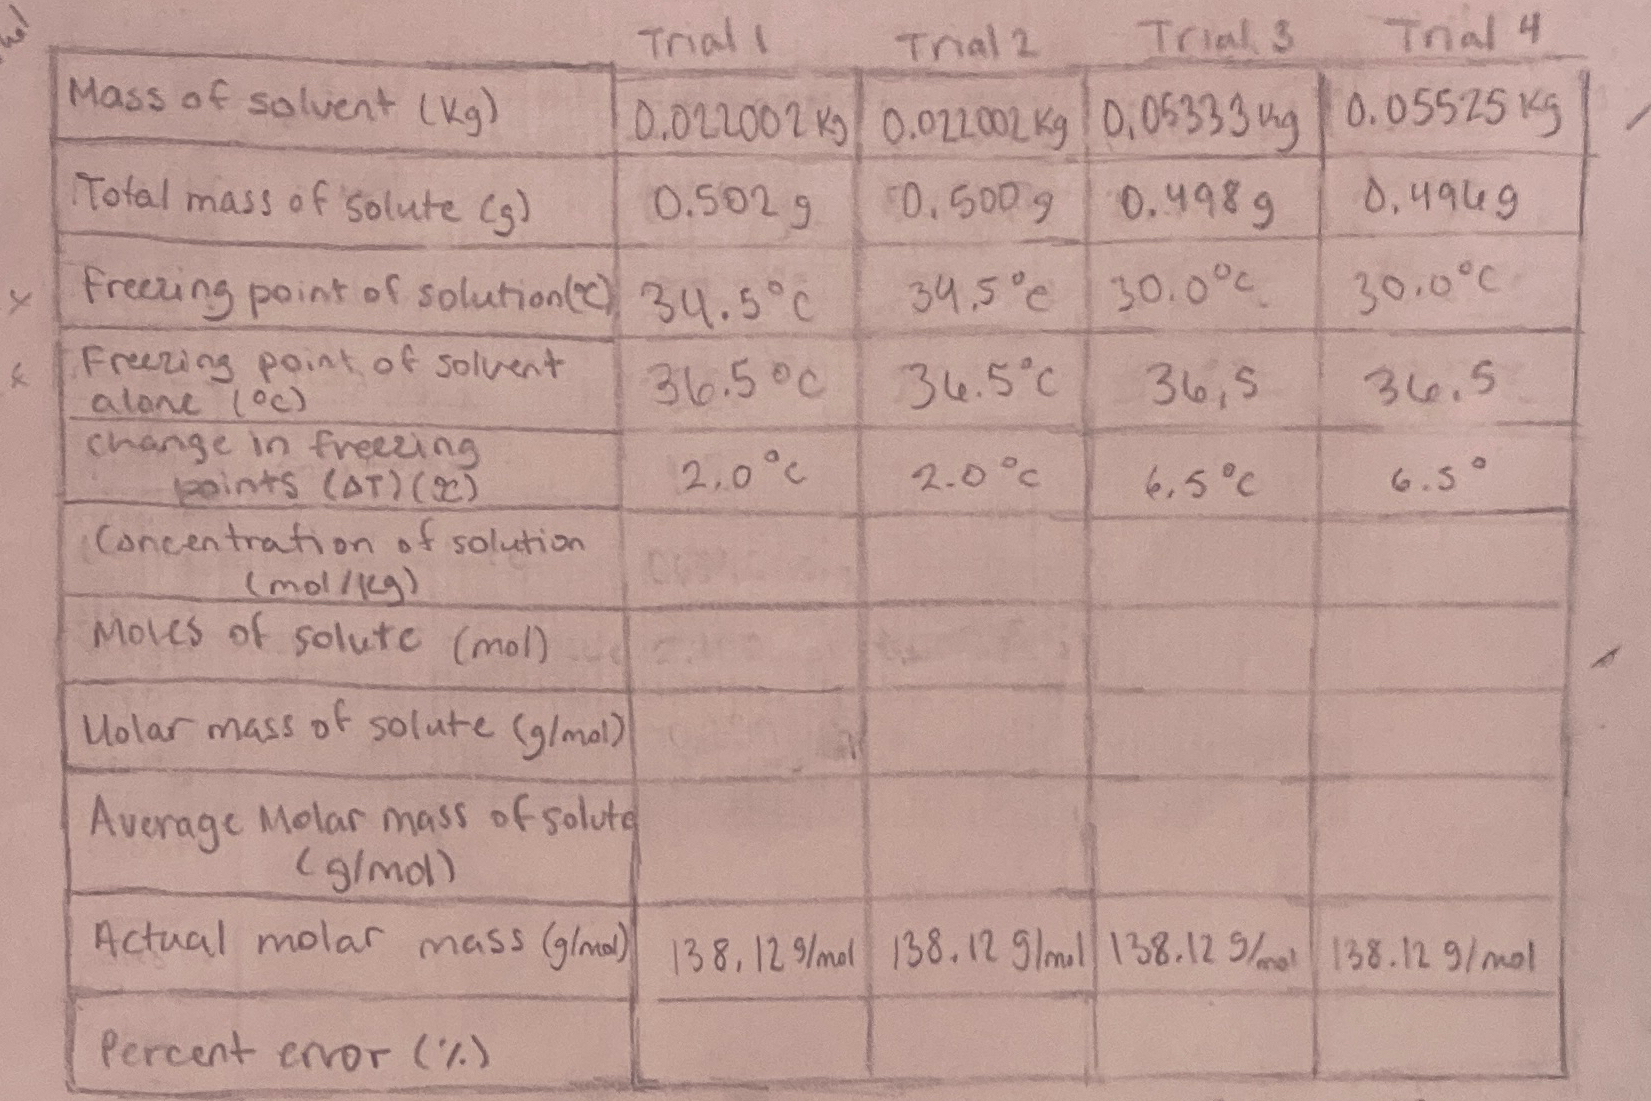 Trial 1 Trial 2 Trial 3 Trial 4
Mass of solvent (Kg) 0.022002 Kg 0.022002 Kg 0.05333 kg 0.05525 Kg
Total mass of solute (g) 0.502 g 0.500 g 0.498 g 0.496 g
Freezing point of solution (°C) 34.5°C 34.5°C 30.0°C 30.0°C
Freezing point of solvent
alone (°C) 36.5°C 36.5°C 36.5 36.5
change in freezing
points (ΔT) (°C) 2.0°C 2.0°C 6.5°C 6.5°
Concentration of solution
(mol/kg)
Moles of solute (mol)
Molar mass of solute (g/mol)
Average Molar mass of solute
(g/mol)
Actual molar mass (g/mol) 138.12 g/mol 138.12 g/mol 138.12 g/mol 138.12 g/mol
Percent error (%)